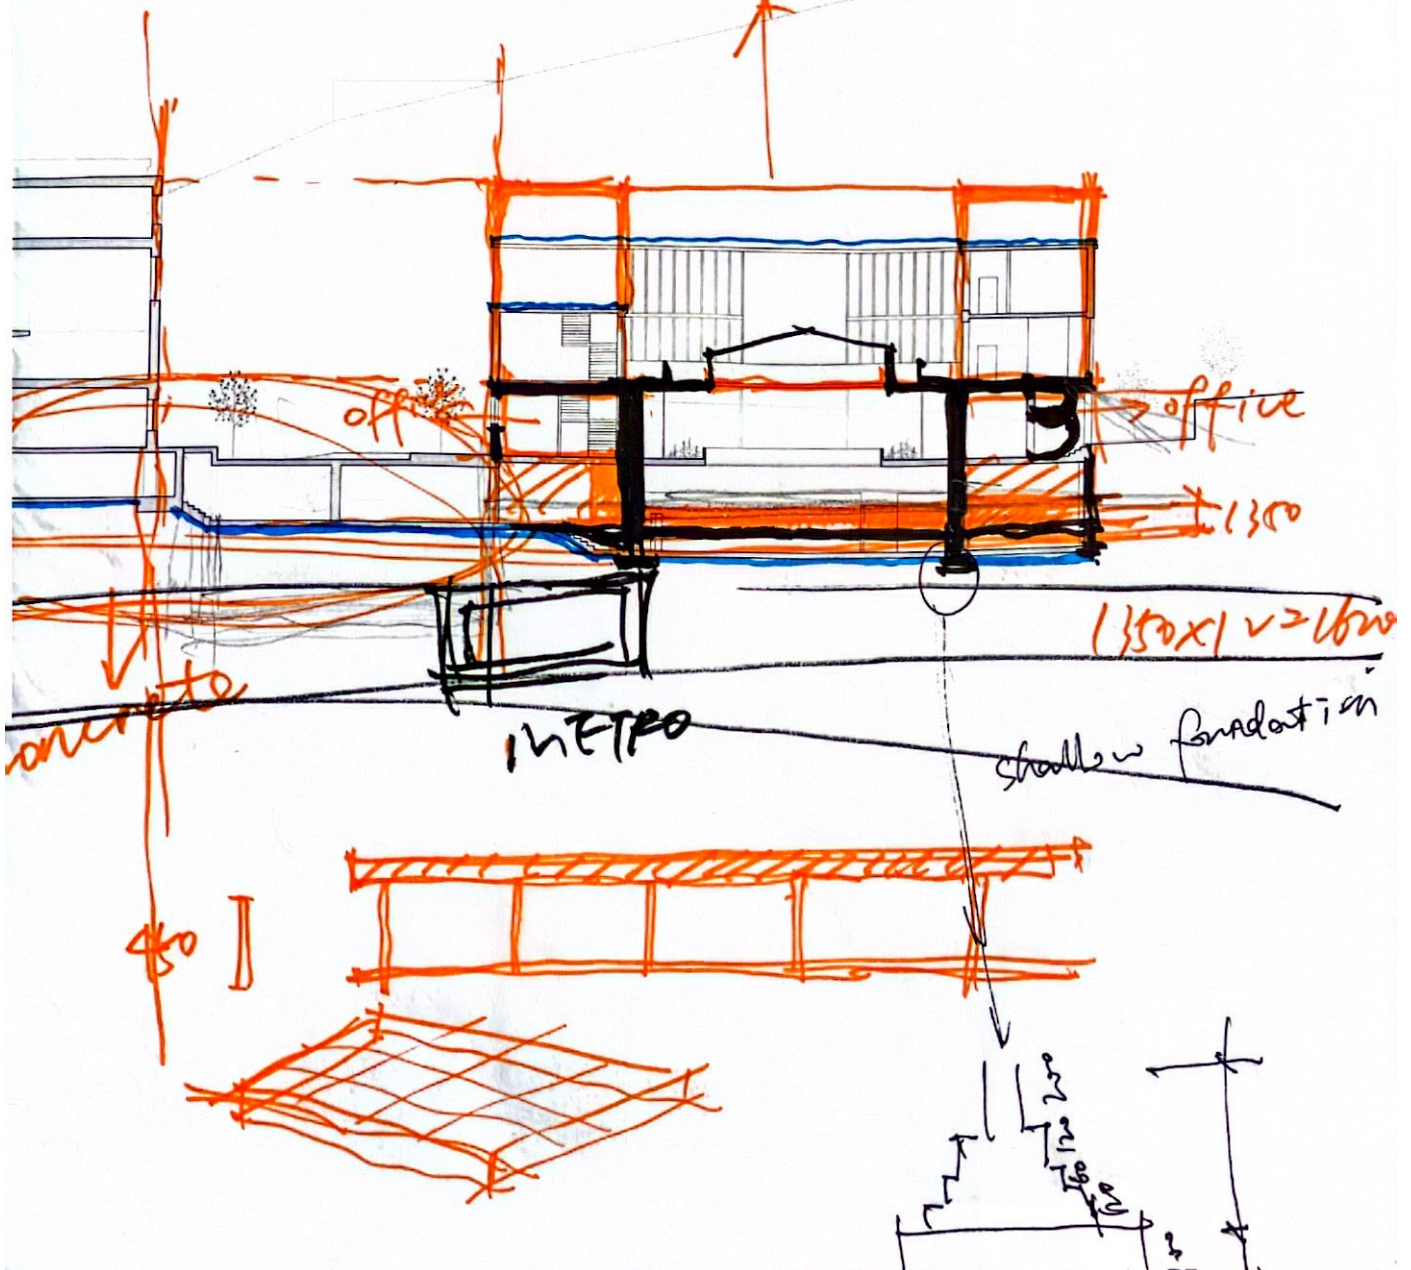 offi
office
1350
1350x1 v=1620
concrete
mETRO
shallow foundation
450
200
120
60